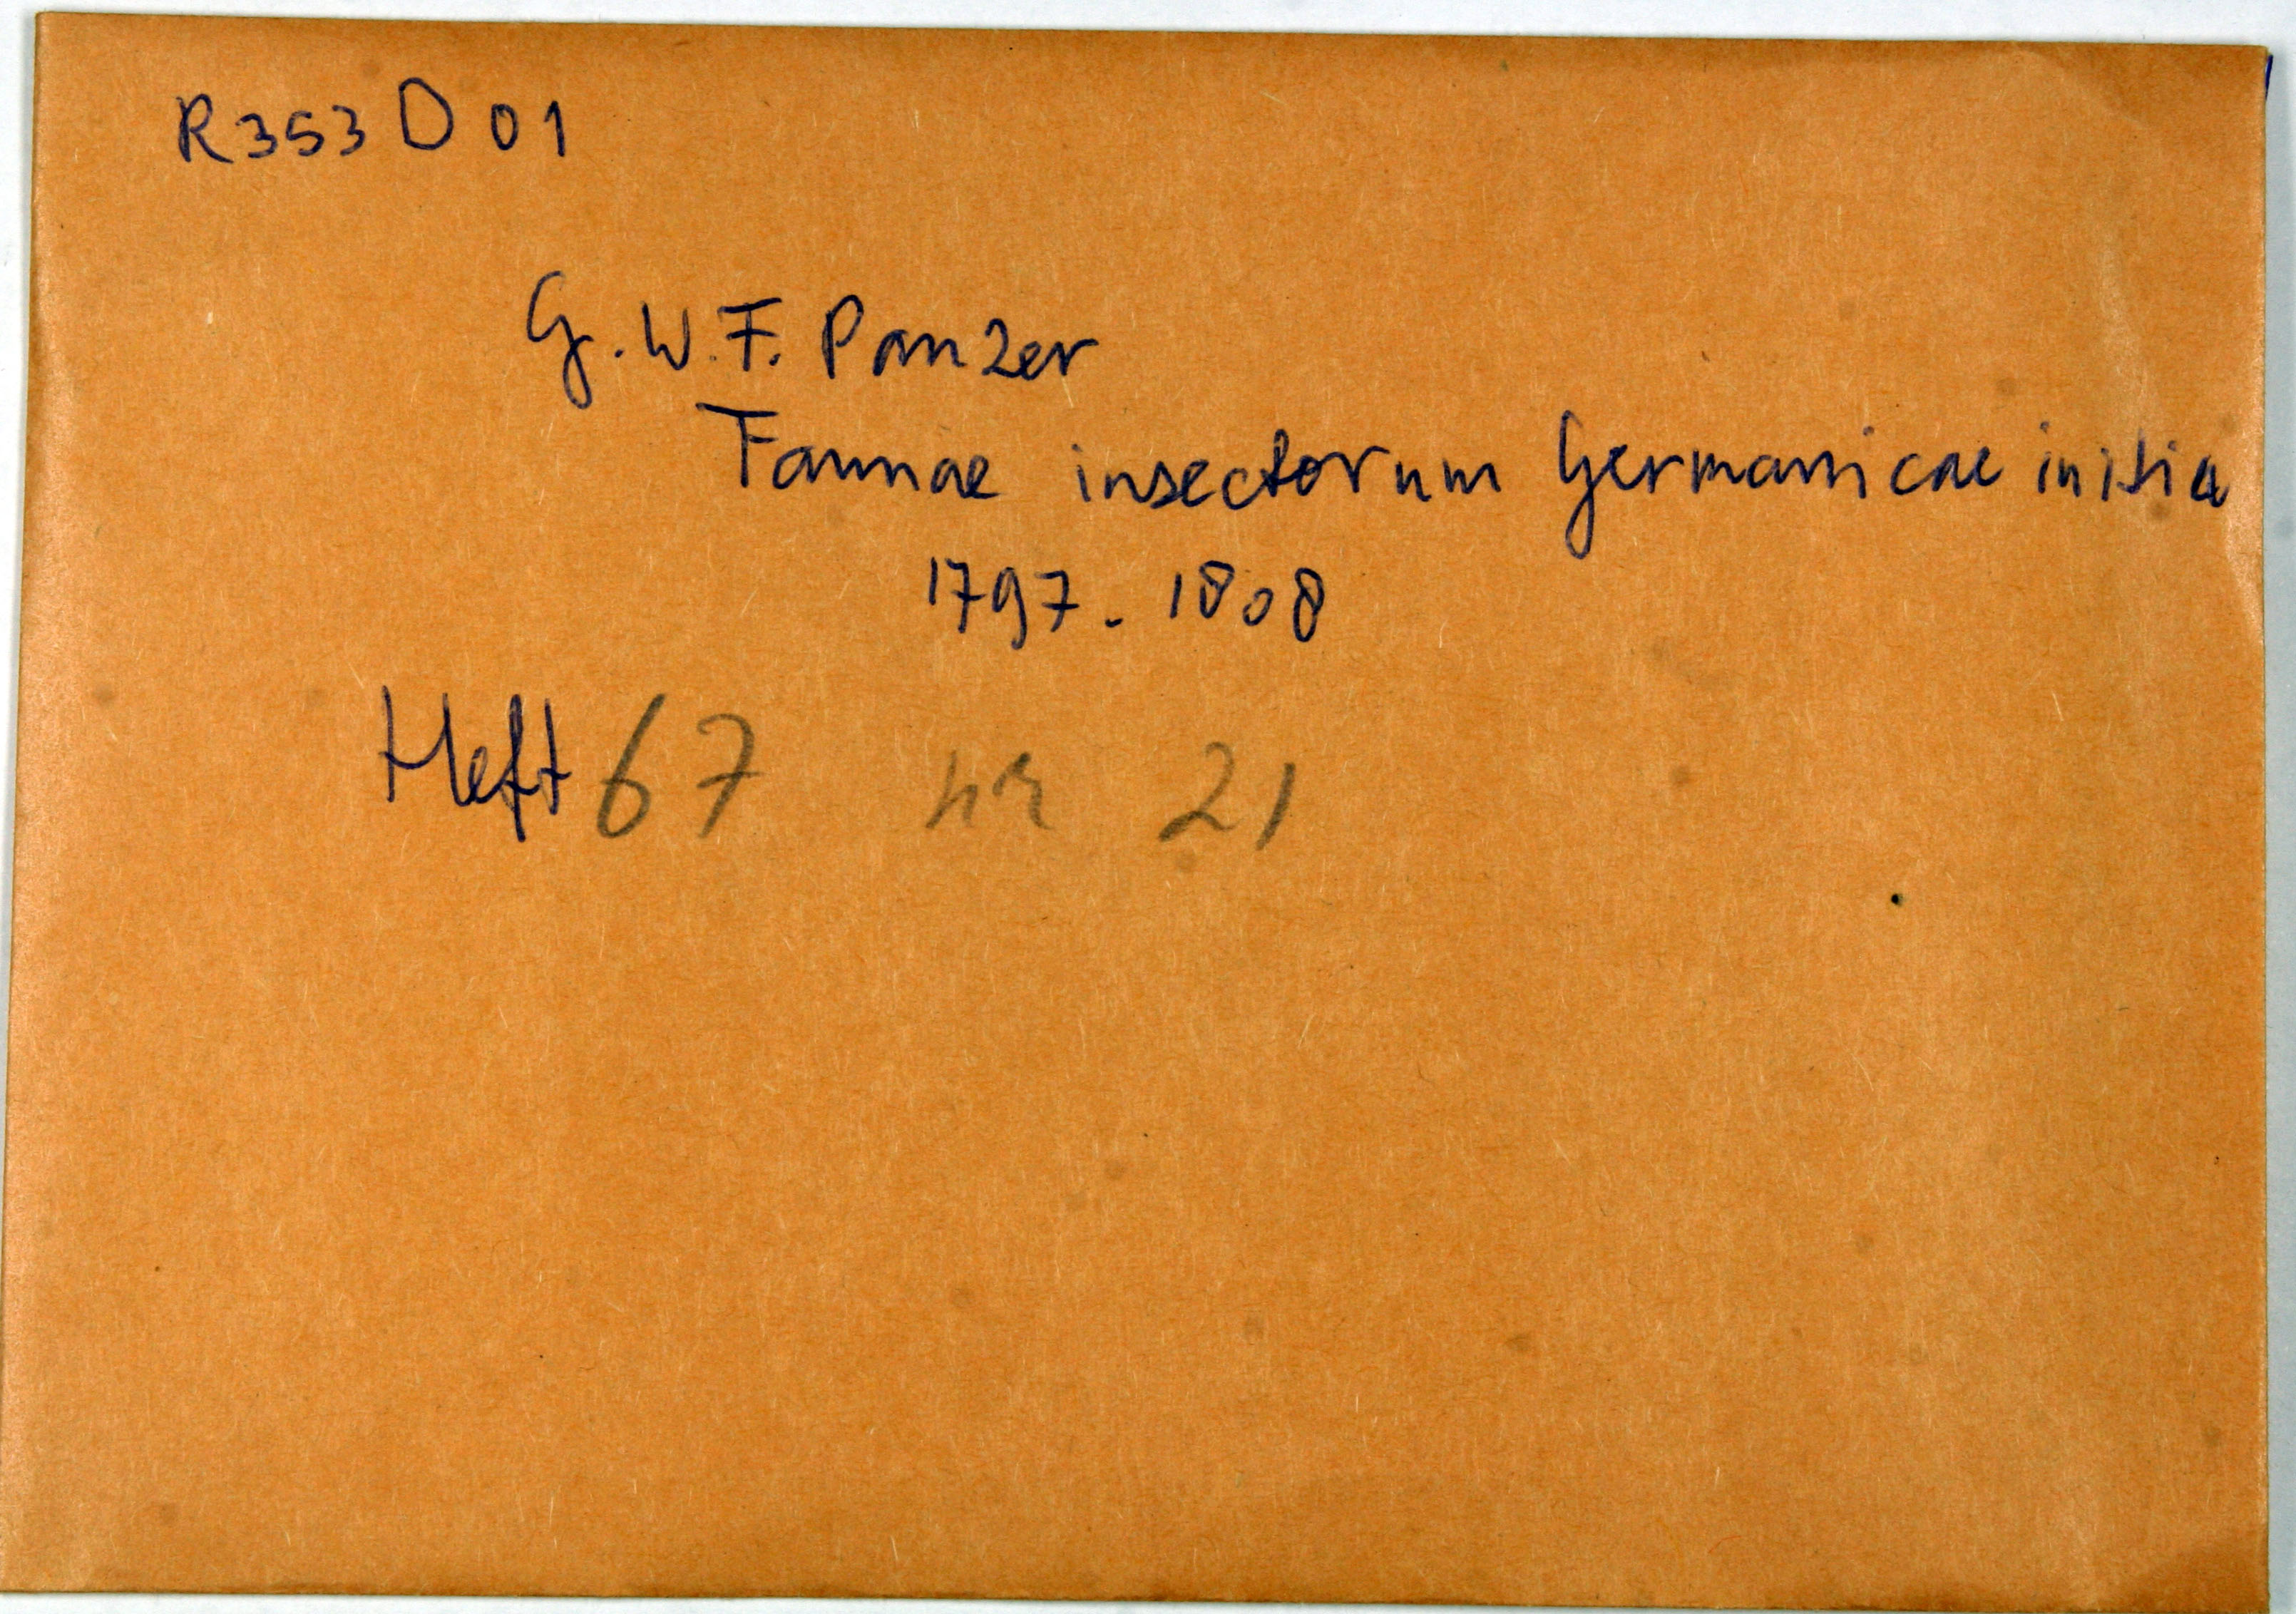 R353 D 01
G. W. F. Panzer
Faunae insectorum Germanicae initia
1797 - 1808
Heft 67 nr 21